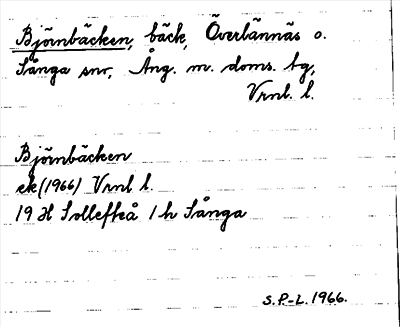 Björnbäcken, bäck, Överlännäs o.
Sånga snr, Ång. m. doms. tg,
Vrnl. l.
Björnbäcken
ek (1966) Vrnl l.
19 H Sollefteå 1 h Sånga
S.P-L. 1966.